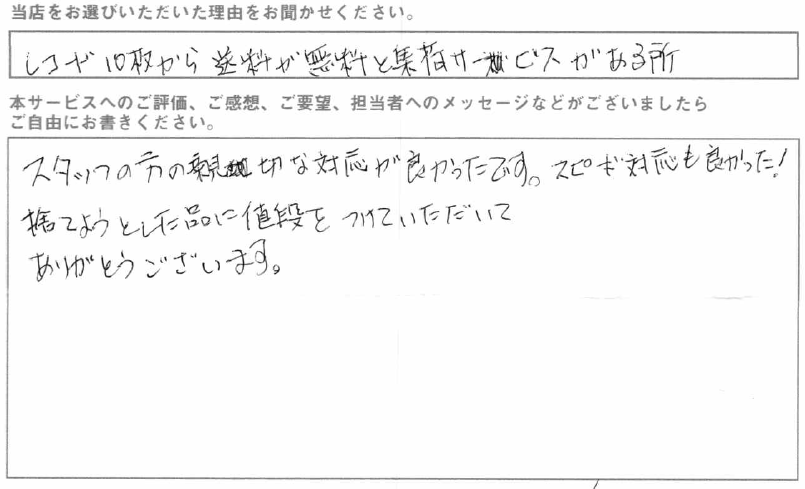 当店をお選びいただいた理由をお聞かせください。
レコード10枚から送料が無料と集荷サービスがある所
本サービスへのご評価、ご感想、ご要望、担当者へのメッセージなどがございましたら
ご自由にお書きください。
スタッフの方の親切な対応が良かったです。スピード対応も良かった!
捨てようとした品に値段をつけていただいて
ありがとうございます。